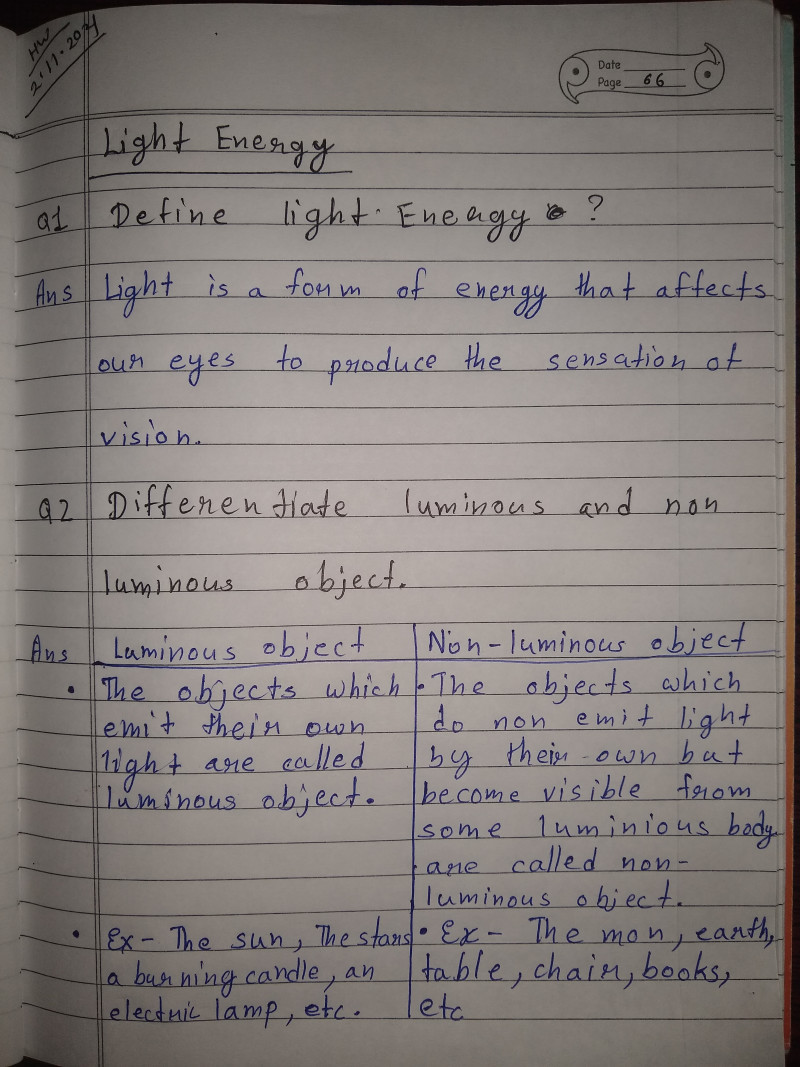 HW
2.11.2021
Date
Page 66
Light Energy
Q1 Define light Energy ?
Ans Light is a form of energy that affects
our eyes to produce the sensation of
vision.
Q2 Differentiate luminous and non
luminous object.
Ans Luminous object | Non-luminous object
• The objects which
emit their own
light are called
luminous object.
• Ex - The sun, The stars
a burning candle, an
electric lamp, etc.
• The objects which
do non emit light
by their own but
become visible from
some luminious body
are called non-
luminous object.
• Ex - The mon, earth,
table, chair, books,
etc